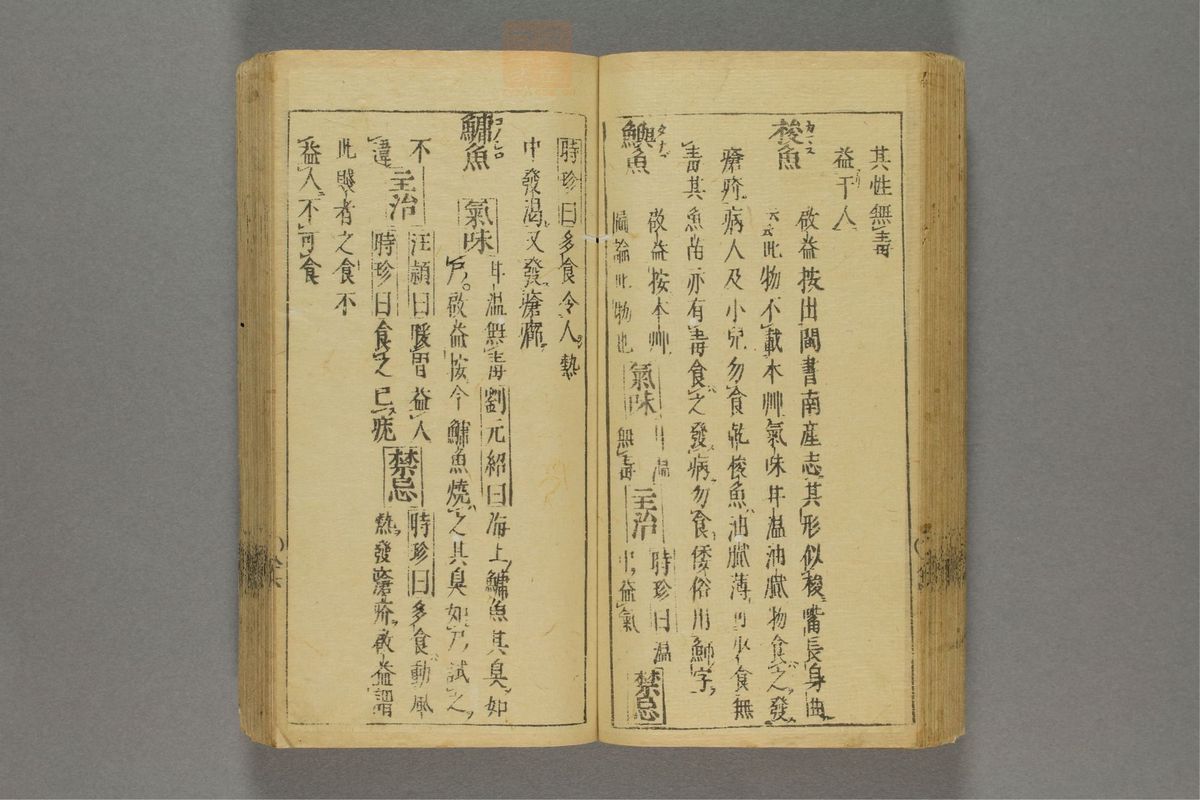 其性無毒
益于人
梭魚 カマス
啟益按出閩書南産志其形似梭嘴長身曲
此物不載本艸氣味甘温油膩物食之發
瘡疥病人及小兒勿食乾梭魚油膩薄 食無
毒其魚苗亦有毒食之發病勿食倭俗用魳字
鱮魚 タナゴ
啟益按本艸
論此物也
氣味
温
無毒
主治
時珍曰温
中益氣
禁忌
時珍曰多食令人熱
中發渴又發瘡癬
鱅魚 コノシロ
氣味
甘温無毒劉元紹曰海上鱅魚其臭如
尸。啟益按今鱅魚燒之其臭如尸試之
不違
主治
汪頴曰暖胃益人
時珍曰食之已疣
禁忌
時珍曰多食動風
熱發瘡疥啟益謂
此賤者之食不
益人不可食